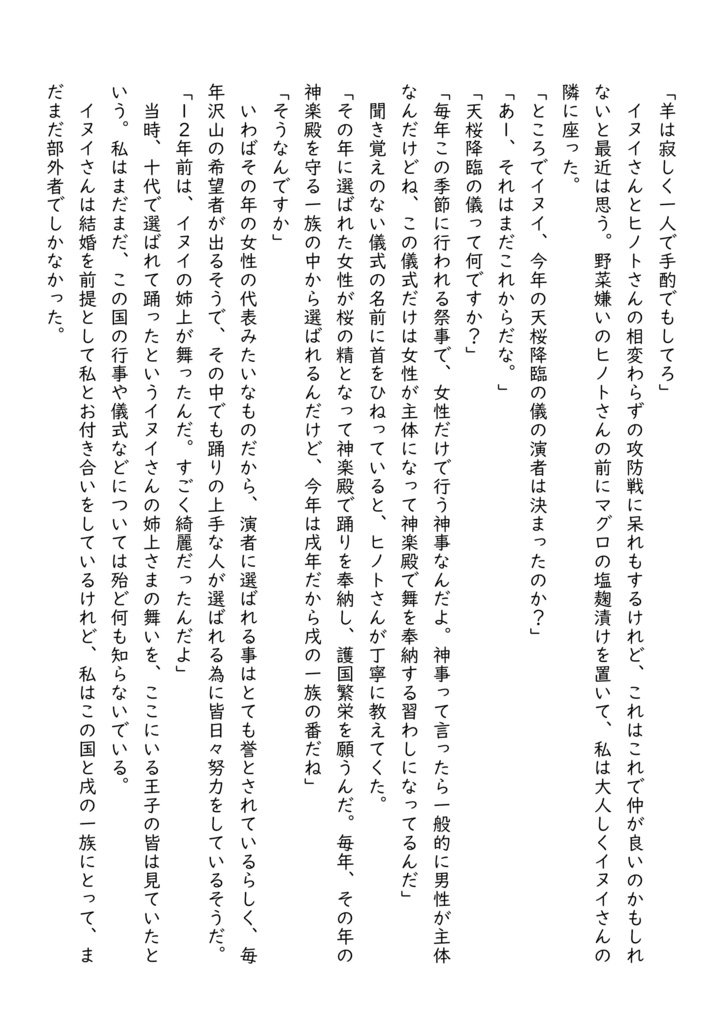 「羊は寂しく一人で手酌でもしてろ」
　イヌイさんとヒノトさんの相変わらずの攻防戦に呆れもするけれど、これはこれで仲が良いのかもしれ
ないと最近は思う。野菜嫌いのヒノトさんの前にマグロの塩麹漬けを置いて、私は大人しくイヌイさんの
隣に座った。
「ところでイヌイ、今年の天桜降臨の儀の演者は決まったのか？」
「あー、それはまだこれからだな。」
「天桜降臨の儀って何ですか？」
「毎年この季節に行われる祭事で、女性だけで行う神事なんだよ。神事って言ったら一般的に男性が主体
なんだけどね、この儀式だけは女性が主体になって神楽殿で舞を奉納する習わしになってるんだ」
　聞き覚えのない儀式の名前に首をひねっていると、ヒノトさんが丁寧に教えてくた。
「その年に選ばれた女性が桜の精となって神楽殿で踊りを奉納し、護国繁栄を願うんだ。毎年、その年の
神楽殿を守る一族の中から選ばれるんだけど、今年は戌年だから戌の一族の番だね」
「そうなんですか」
　いわばその年の女性の代表みたいなものだから、演者に選ばれる事はとても誉とされているらしく、毎
年沢山の希望者が出るそうで、その中でも踊りの上手な人が選ばれる為に皆日々努力をしているそうだ。
「１２年前は、イヌイの姉上が舞ったんだ。すごく綺麗だったんだよ」
　当時、十代で選ばれて踊ったというイヌイさんの姉上さまの舞いを、ここにいる王子の皆は見ていたと
いう。私はまだまだ、この国の行事や儀式などについては殆ど何も知らないでいる。
　イヌイさんは結婚を前提として私とお付き合いをしているけれど、私はこの国と戌の一族にとって、ま
だまだ部外者でしかなかった。